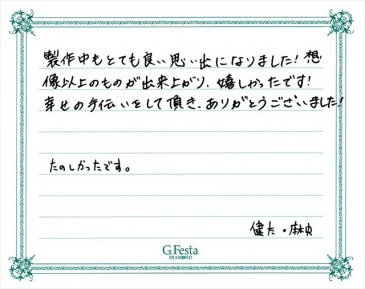 製作中もとても良い思い出になりました！想
像以上のものが出来上がり、嬉しかったです！
幸せの手伝いをして頂き、ありがとうございました！
たのしかったです。
健太・麻由
G.Festa
DIAMOND